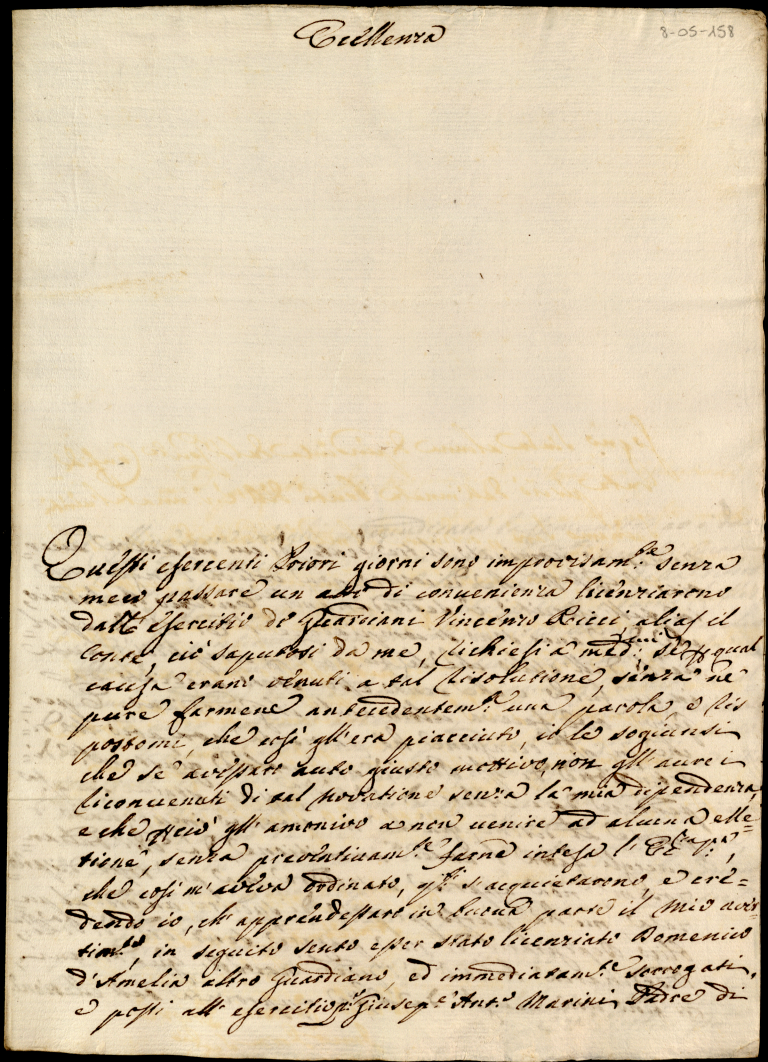 Eccellenza
8-05-158
Questi esercenti Priori giorni sono improvisam.te senza
meco passare un atto di convenienza licenziarono
dall'esercitio de Guardiani Vincenzo Ricci, alias il
Conte, ciò saputosi da me, richiesi a med.mi se p qual
causa erano venuti a tal risolutione, senza nè
pure farmene antecedentem.te una parola, e ris
postomi, che così gl'era piacciuto, io le sogiunsi
che se avessaro auto giusto mottivo, non gl'aurei
riconvenuti di tal novatione senza la mia dipendenza,
e che p ciò gl'amonivo a non venire ad alcuna elle=
tione, senza preventivam.te farne intesa l'
che così m'aveva ordinato, q.ti s'acquietarono, e cre=
dendo io, ch'apprendessaro in buona parte il mio aver
tim.to, in seguito sento esser stato licenziato Domenico
d'Amelia altro Guardiano, ed immediatam.te sorrogati,
e posti all'esercitio Giusep.e Ant.o Marini Padre di